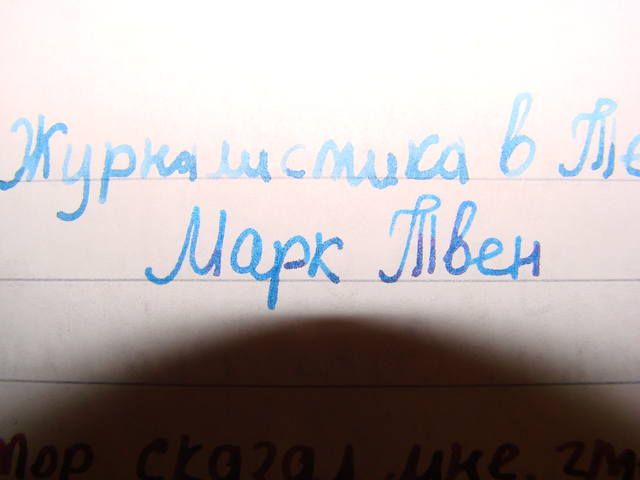 Журналистика в Те
Марк Твен
тор сказал мне, чт